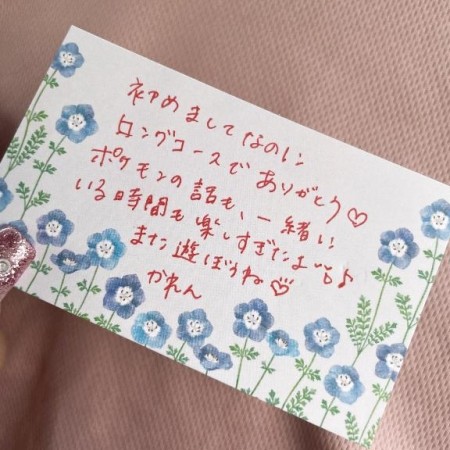 初めましてなのに
ロングコースでありがとう♡
ポケモンの話も、一緒に
いる時間も楽しすぎたまである♪
また遊ぼうね♡
かれん